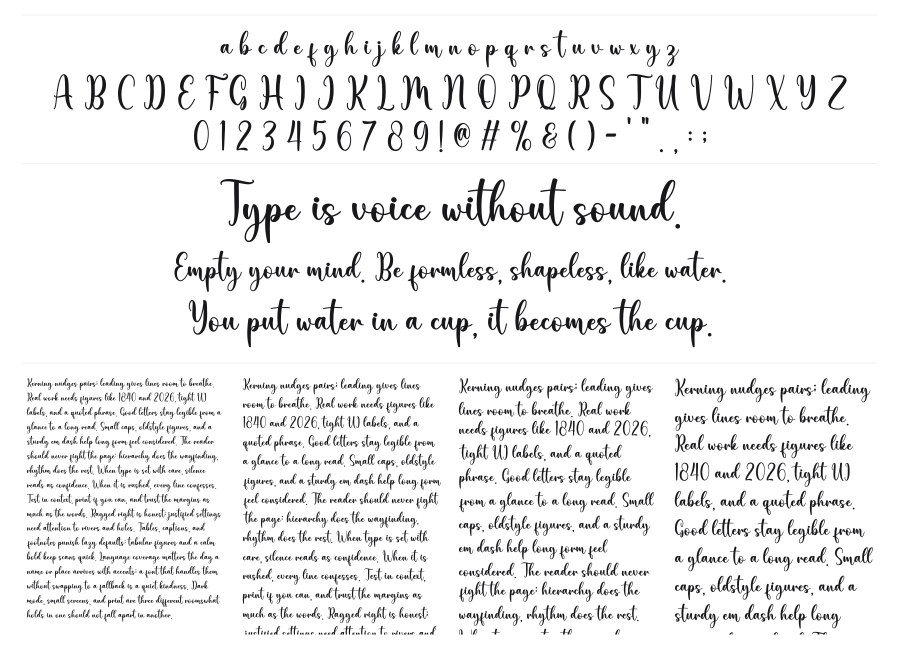 a b c d e f g h i j k l m n o p q r s t u v w x y z
A B C D E F G H I J K L M N O P Q R S T U V W X Y Z
0 1 2 3 4 5 6 7 8 9 ! @ # % & ( ) - ' " . , : ;
Type is voice without sound.
Empty your mind. Be formless, shapeless, like water.
You put water in a cup, it becomes the cup.
Kerning nudges pairs; leading gives lines room to breathe.
Real work needs figures like 1840 and 2026, tight UI
labels, and a quoted phrase. Good letters stay legible from a
glance to a long read. Small caps, oldstyle figures, and a
sturdy em dash help long form feel considered. The reader
should never fight the page: hierarchy does the wayfinding,
rhythm does the rest. When type is set with care, silence
reads as confidence. When it is rushed, every line confesses.
Test in context, print if you can, and trust the margins as
much as the words. Ragged right is honest; justified settings
need attention to rivers and holes. Tables, captions, and
footnotes punish lazy defaults: tabular figures and a calm
bold keep scans quick. Language coverage matters the day a
name or place arrives with accents; a font that handles them
without swapping to a fallback is a quiet kindness. Dark
mode, small screens, and print are three different rooms: what
holds in one should not fall apart in another.
Kerning nudges pairs; leading gives lines
room to breathe. Real work needs figures like
1840 and 2026, tight UI labels, and a
quoted phrase. Good letters stay legible from
a glance to a long read. Small caps, oldstyle
figures, and a sturdy em dash help long form
feel considered. The reader should never fight
the page: hierarchy does the wayfinding,
rhythm does the rest. When type is set with
care, silence reads as confidence. When it is
rushed, every line confesses. Test in context,
print if you can, and trust the margins as
much as the words. Ragged right is honest;
justified settings need attention to rivers and
Kerning nudges pairs; leading gives
lines room to breathe. Real work
needs figures like 1840 and 2026,
tight UI labels, and a quoted
phrase. Good letters stay legible
from a glance to a long read. Small
caps, oldstyle figures, and a sturdy
em dash help long form feel
considered. The reader should never
fight the page: hierarchy does the
wayfinding, rhythm does the rest.
Kerning nudges pairs; leading
gives lines room to breathe.
Real work needs figures like
1840 and 2026, tight UI
labels, and a quoted phrase.
Good letters stay legible from
a glance to a long read. Small
caps, oldstyle figures, and a
sturdy em dash help long